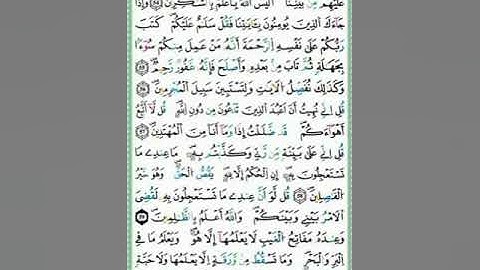 عَلَيْهِم مِّنۢ بَيْنِنَآ ۗ أَلَيْسَ ٱللَّهُ بِأَعْلَمَ بِٱلشَّـٰكِرِينَ ۝٥٣ وَإِذَا
جَآءَكَ ٱلَّذِينَ يُؤْمِنُونَ بِـَٔايَـٰتِنَا فَقُلْ سَلَـٰمٌ عَلَيْكُمْ ۖ كَتَبَ
رَبُّكُمْ عَلَىٰ نَفْسِهِ ٱلرَّحْمَةَ ۖ أَنَّهُۥ مَنْ عَمِلَ مِنكُمْ سُوٓءًۢا
بِجَهَـٰلَةٍ ثُمَّ تَابَ مِنۢ بَعْدِهِۦ وَأَصْلَحَ فَأَنَّهُۥ غَفُورٌ رَّحِيمٌ ۝٥٤
وَكَذَٰلِكَ نُفَصِّلُ ٱلْـَٔايَـٰتِ وَلِتَسْتَبِينَ سَبِيلُ ٱلْمُجْرِمِينَ ۝٥٥
قُلْ إِنِّى نُهِيتُ أَنْ أَعْبُدَ ٱلَّذِينَ تَدْعُونَ مِن دُونِ ٱللَّهِ ۚ قُل لَّآ أَتَّبِعُ
أَهْوَآءَكُمْ ۙ قَدْ ضَلَلْتُ إِذًا وَمَآ أَنَا۠ مِنَ ٱلْمُهْتَدِينَ ۝٥٦
قُلْ إِنِّى عَلَىٰ بَيِّنَةٍ مِّن رَّبِّى وَكَذَّبْتُم بِهِۦ ۚ مَا عِندِى مَا
تَسْتَعْجِلُونَ بِهِۦٓ ۚ إِنِ ٱلْحُكْمُ إِلَّا لِلَّهِ ۖ يَقُصُّ ٱلْحَقَّ ۖ وَهُوَ خَيْرُ
ٱلْفَـٰصِلِينَ ۝٥٧ قُل لَّوْ أَنَّ عِندِى مَا تَسْتَعْجِلُونَ بِهِۦ لَقُضِىَ
ٱلْأَمْرُ بَيْنِى وَبَيْنَكُمْ ۗ وَٱللَّهُ أَعْلَمُ بِٱلظَّـٰلِمِينَ ۝٥٨
وَعِندَهُۥ مَفَاتِحُ ٱلْغَيْبِ لَا يَعْلَمُهَآ إِلَّا هُوَ ۚ وَيَعْلَمُ مَا فِى
ٱلْبَرِّ وَٱلْبَحْرِ ۚ وَمَا تَسْقُطُ مِن وَرَقَةٍ إِلَّا يَعْلَمُهَا وَلَا حَبَّةٍ